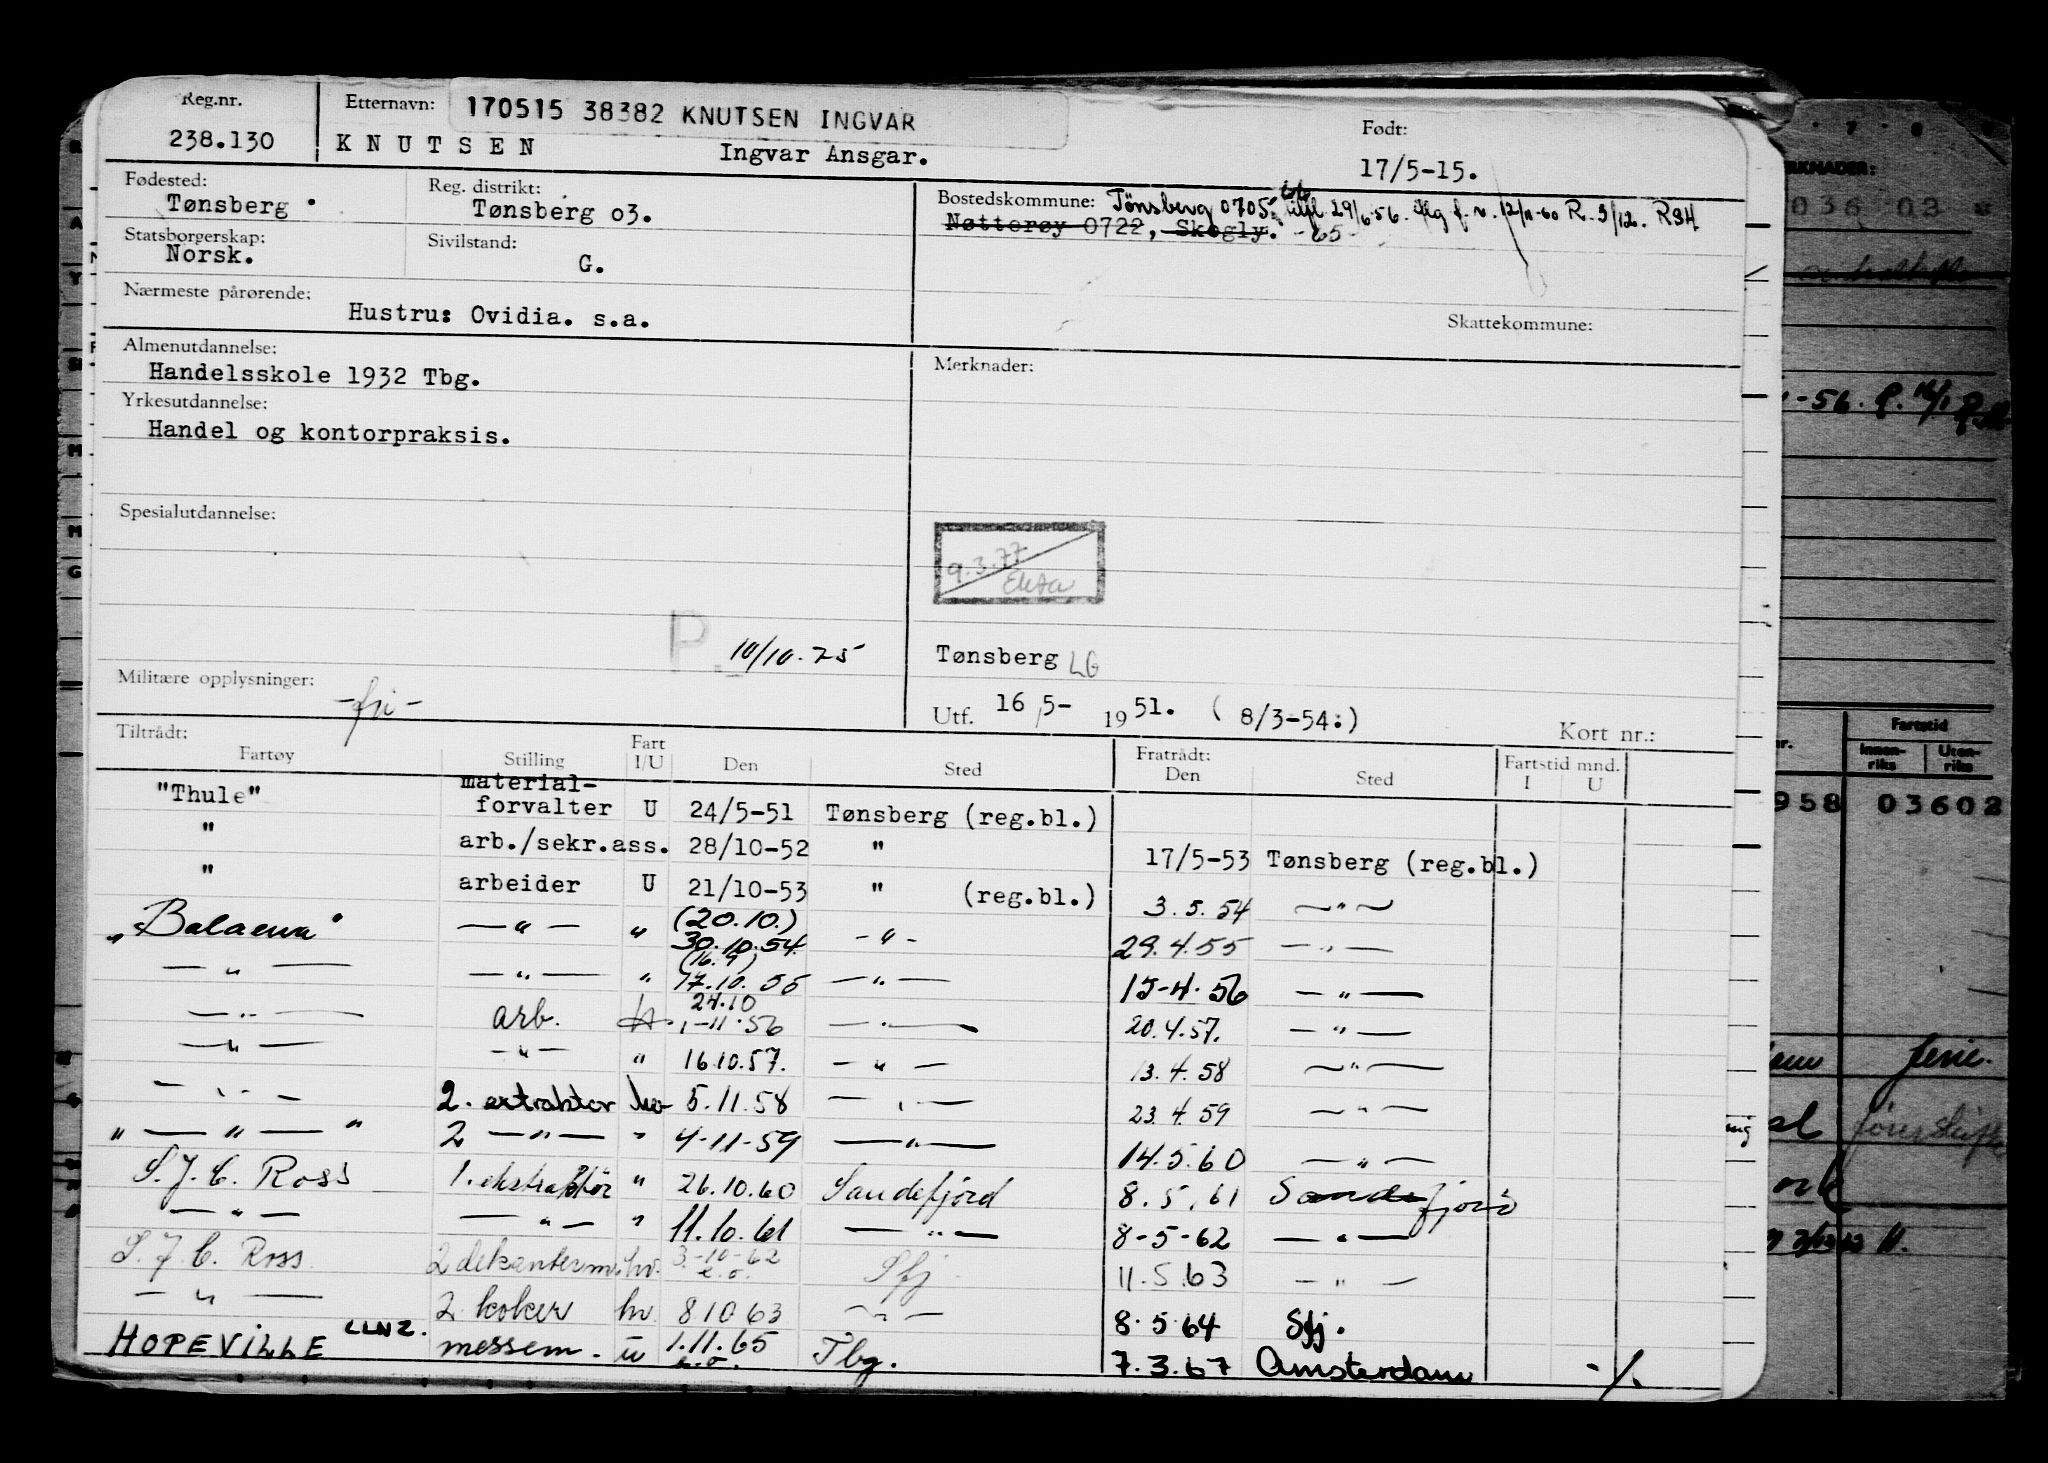 Reg.nr. Etternavn: 170515 38382 KNUTSEN INGVAR Født:
238.130 KNUTSEN Ingvar Ansgar. 17/5-15.
Fødested: Reg. distrikt: Bostedskommune: Tönsberg 0705. tilfl 29/6-56.
Tønsberg Tønsberg o3. Nøtterøy 0722, Skogly. -65-
Statsborgerskap: Sivilstand:
Norsk. G.
Nærmeste pårørende:
Hustru: Ovidia. s.a. Skattekommune:
Almenutdannelse: Merknader:
Handelsskole 1932 Tbg.
Yrkesutdannelse:
Handel og kontorpraksis.
Spesialutdannelse:
9.3.77
P. 10/10.75
Tønsberg LG
Militære opplysninger: -fri-
Utf. 16/5- 1951. ( 8/3-54:) Kort nr.:
Tiltrådt: Fratrådt:
Fartøy Stilling Fart I/U Den Sted Den Sted Fartstid mnd. I U
"Thule" material-forvalter U 24/5-51 Tønsberg (reg.bl.)
" arb./sekr.ass. 28/10-52 " 17/5-53 Tønsberg (reg.bl.)
" arbeider U 21/10-53 " (reg.bl.) 3.5.54 —"—
„Balaena" —"— " (20.10.) 30.10.54 -"- 29.4.55 —"—
—"— —"— " (16.9) 17.10.55 —"— 15-4.56 —"—
—"— arb. 24.10 1-11.56 —"— 20.4.57. —"—
—"— —"— " 16.10.57. —"— 13.4.58 —"—
—"— 2. extraktor hv 5.11.58 —"— 23.4.59 —"—
"—"—" 2 —"— " 4-11-59 —"— 14.5.60 —"—
S.J.C. Ross 1. ekstraktör " 26.10.60 Sandefjord 8.5.61 Sandefjord
—"— —"— " 11.10.61 —"— 8-5-62 —"—
S.J.C. Ross 2 dekanterm. hv. 3-10-62 e.o. Sfj 11.5.63 —"—
—"— 2 koker hv 8 10 63 —"— 8.5.64 Sfj.
HOPEVILLE LLNZ. messem. u 1.11.65 e.o. Tbg. 7.3.67 Amsterdam -/.
RKNADER:
036 02
-56.
Fartstid
Innen-riks Uten-riks
958 03602
ferie.